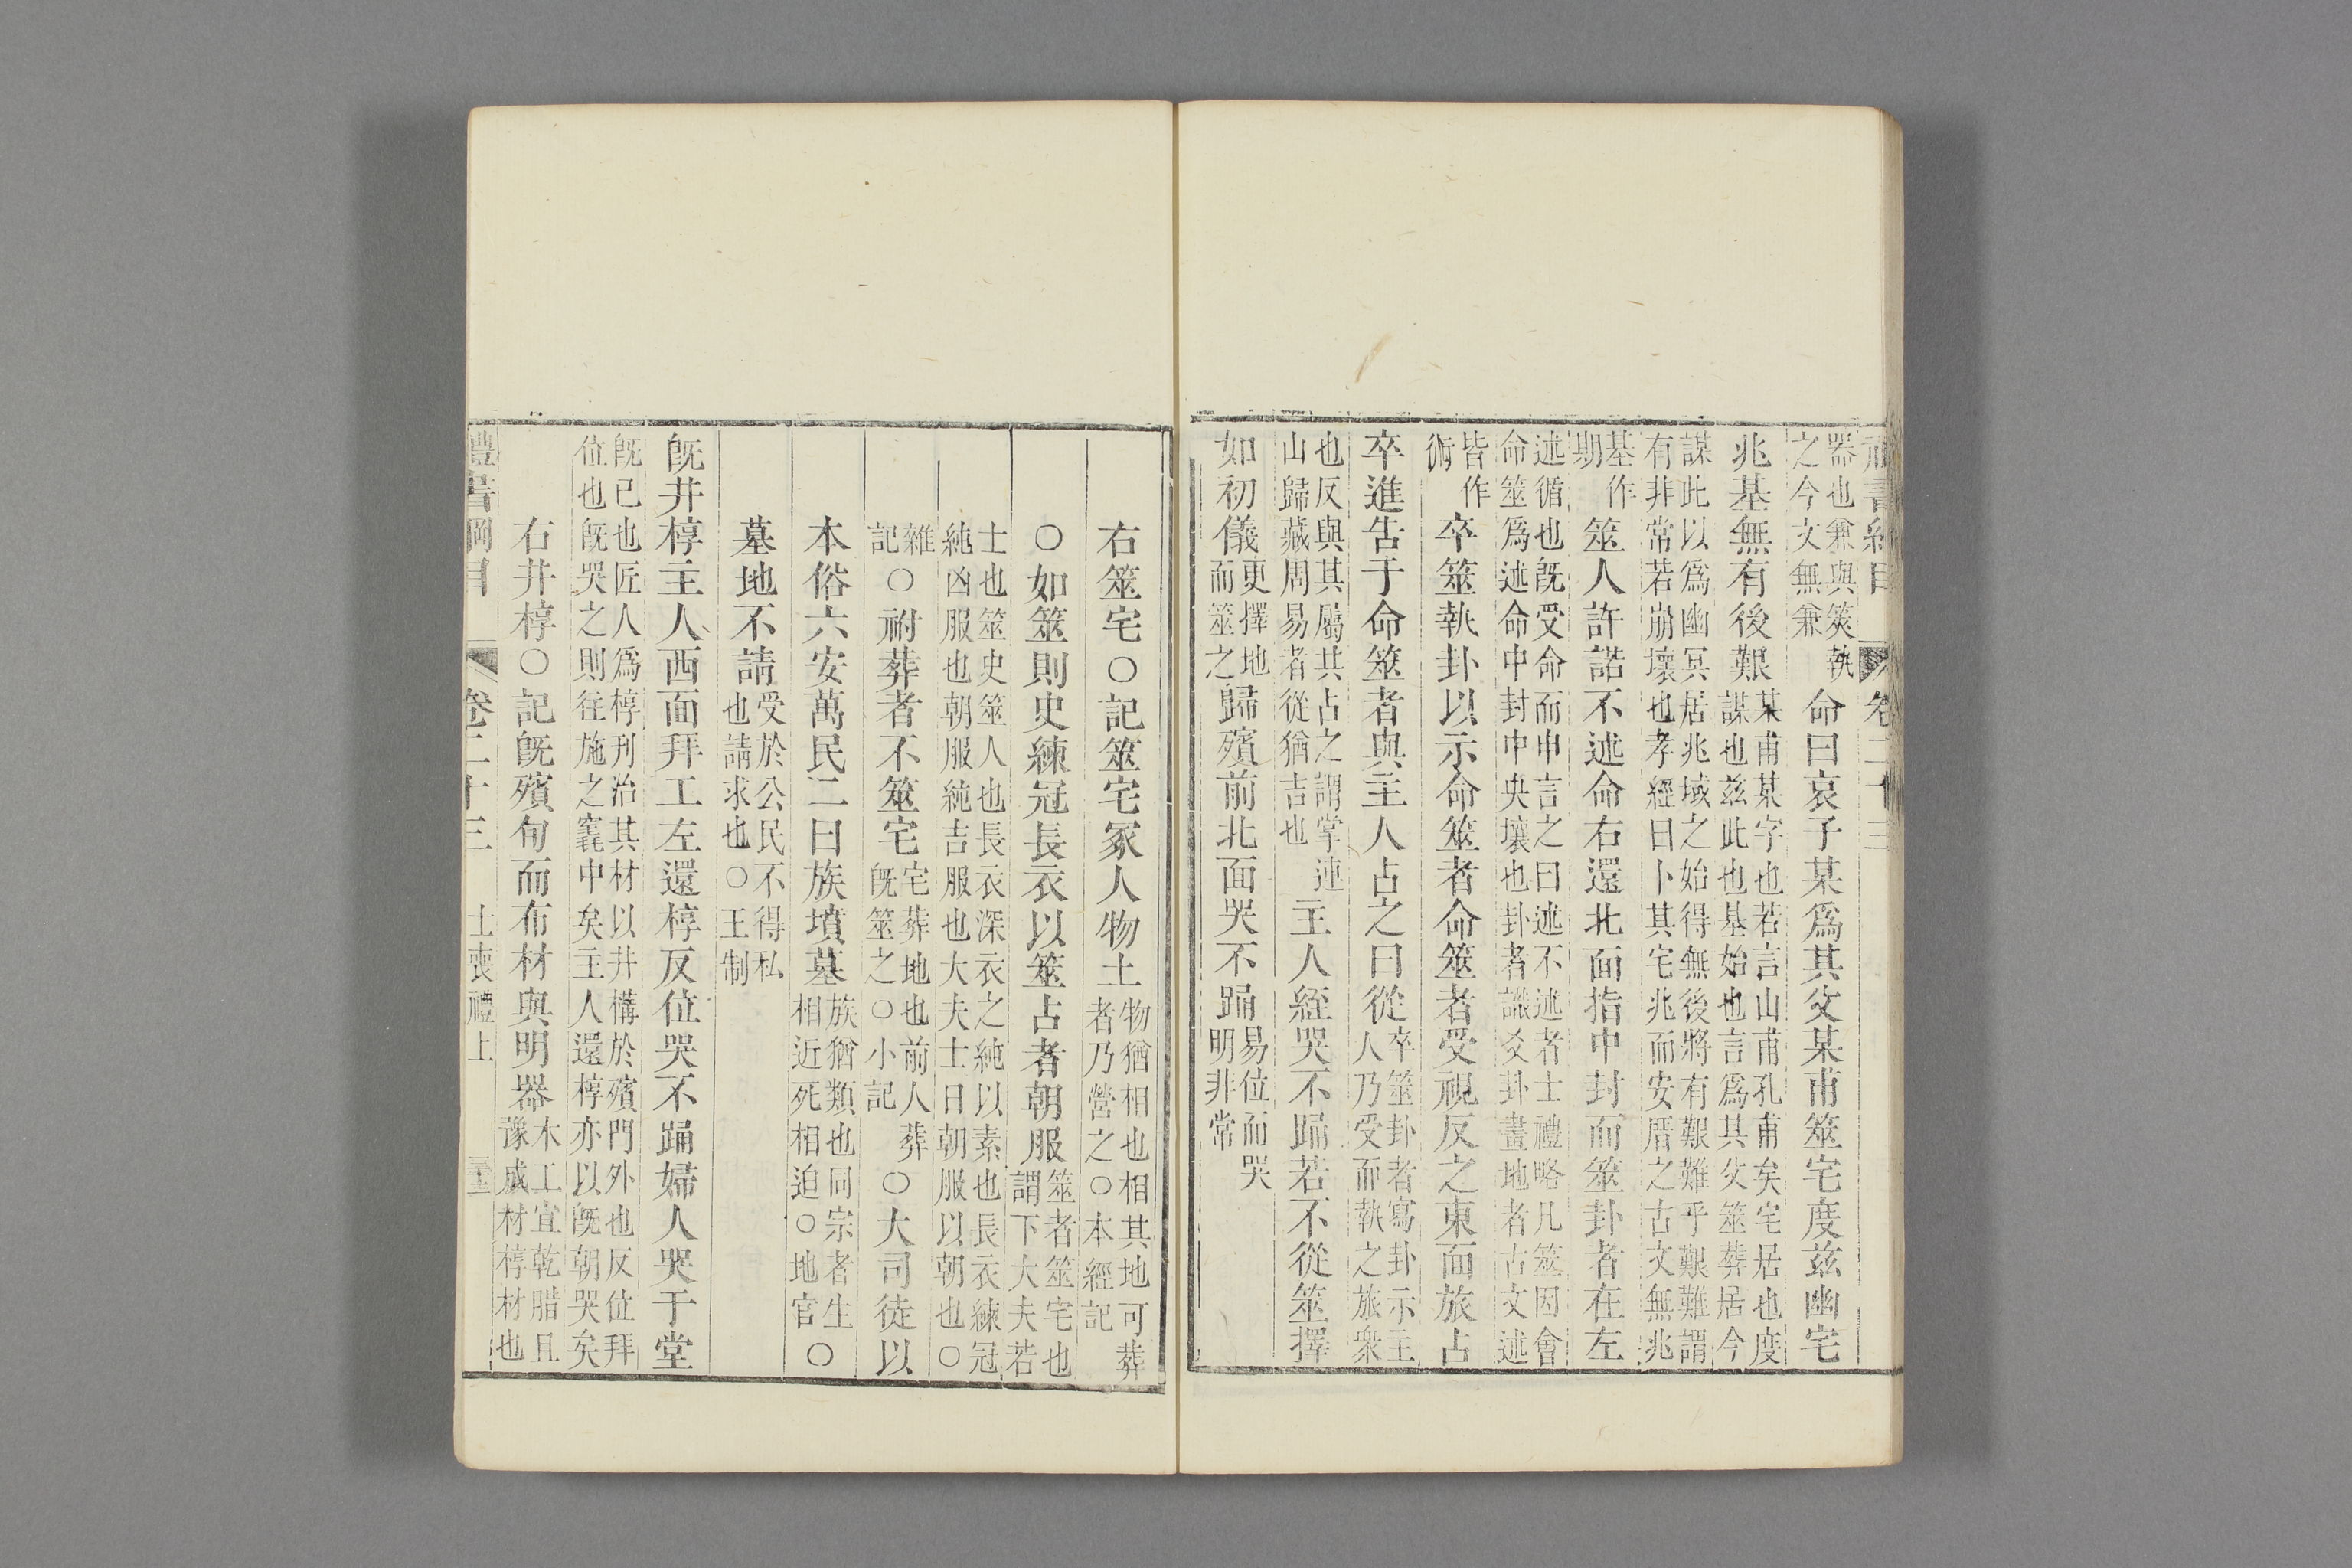 禮書綱目 卷二十三
器也兼與筴執之今文無兼命曰哀子某爲其父某甫筮宅度茲幽宅
兆基無有後艱某甫某字也若言山甫孔甫矣宅居也度謀也茲此也基始也言爲其父筮葬居今
謀此以爲幽冥居兆域之始得無後將有艱難乎艱難謂有非常若崩壞也孝經曰卜其宅兆而安厝之古文無兆
基作期筮人許諾不述命右還北面指中封而筮卦者在左
述循也旣受命而申言之曰述不述者士禮略凡筮因會命筮爲述命中封中央壤也卦者識爻卦畫地者古文述
皆作術卒筮執卦以示命筮者命筮者受視反之東面旅占
卒進告于命筮者與主人占之曰從卒筮卦者寫卦示主人乃受而執之旅衆
也反與其屬共占之謂掌連山歸藏周易者從猶吉也主人絰哭不踊若不從筮擇
如初儀更擇地而筮之歸殯前北面哭不踊易位而哭明非常
右筮宅○記筮宅冢人物土物猶相也相其地可葬者乃營之○本經記
○如筮則史練冠長衣以筮占者朝服筮者筮宅也謂下大夫若
士也筮史筮人也長衣深衣之純以素也長衣練冠純凶服也朝服純吉服也大夫士日朝服以朝也○
雜記○祔葬者不筮宅宅葬地也前人葬旣筮之○小記○大司徒以
本俗六安萬民二曰族墳墓族猶類也同宗者生相近死相迫○地官○
墓地不請受於公民不得私也請求也○王制
旣井椁主人西面拜工左還椁反位哭不踊婦人哭于堂
旣已也匠人爲椁刊治其材以井構於殯門外也反位拜位也旣哭之則往施之竁中矣主人還椁亦以旣朝哭矣
右井椁○記旣殯旬而布材與明器木工宜乾腊且豫成材椁材也
禮書綱目 卷二十三 士喪禮上